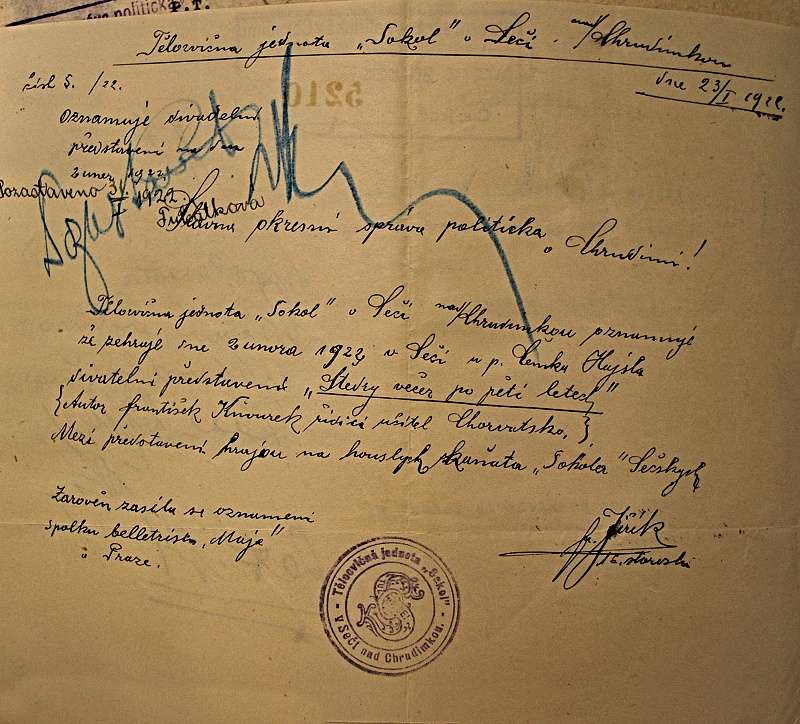 politická P.T.
Tělocvična jednota „Sokol" v Seči nad/Chrudimkou
čísl 5. /22.
dne 23/I 1922.
5210
Oznamuje divadelní
představení na den
2 unor 1922
Pozastaveno 31/I 1922
Slavna okresní správa politicka
v Chrudimi!
Tělocvična jednota „Sokol" v Seči nad/Chrudimkou oznamuje
že sehraje dne 2 unora 1922 v Seči u p. Čeňka Hájka
divatelní představení „Štedry večer po pěti letech"
{Autor františek Knourek řídící učitel Chorvatsko,}
Mezi představení hrajou na houslych „Sokola" Sečskych
Zaroveň zasila se oznameni
spolku belletristu „Maje"
v Praze.
Jiřík
t.č. starosta
Tělocvičná jednota „Sokol"
v Seči nad Chrudimkou.